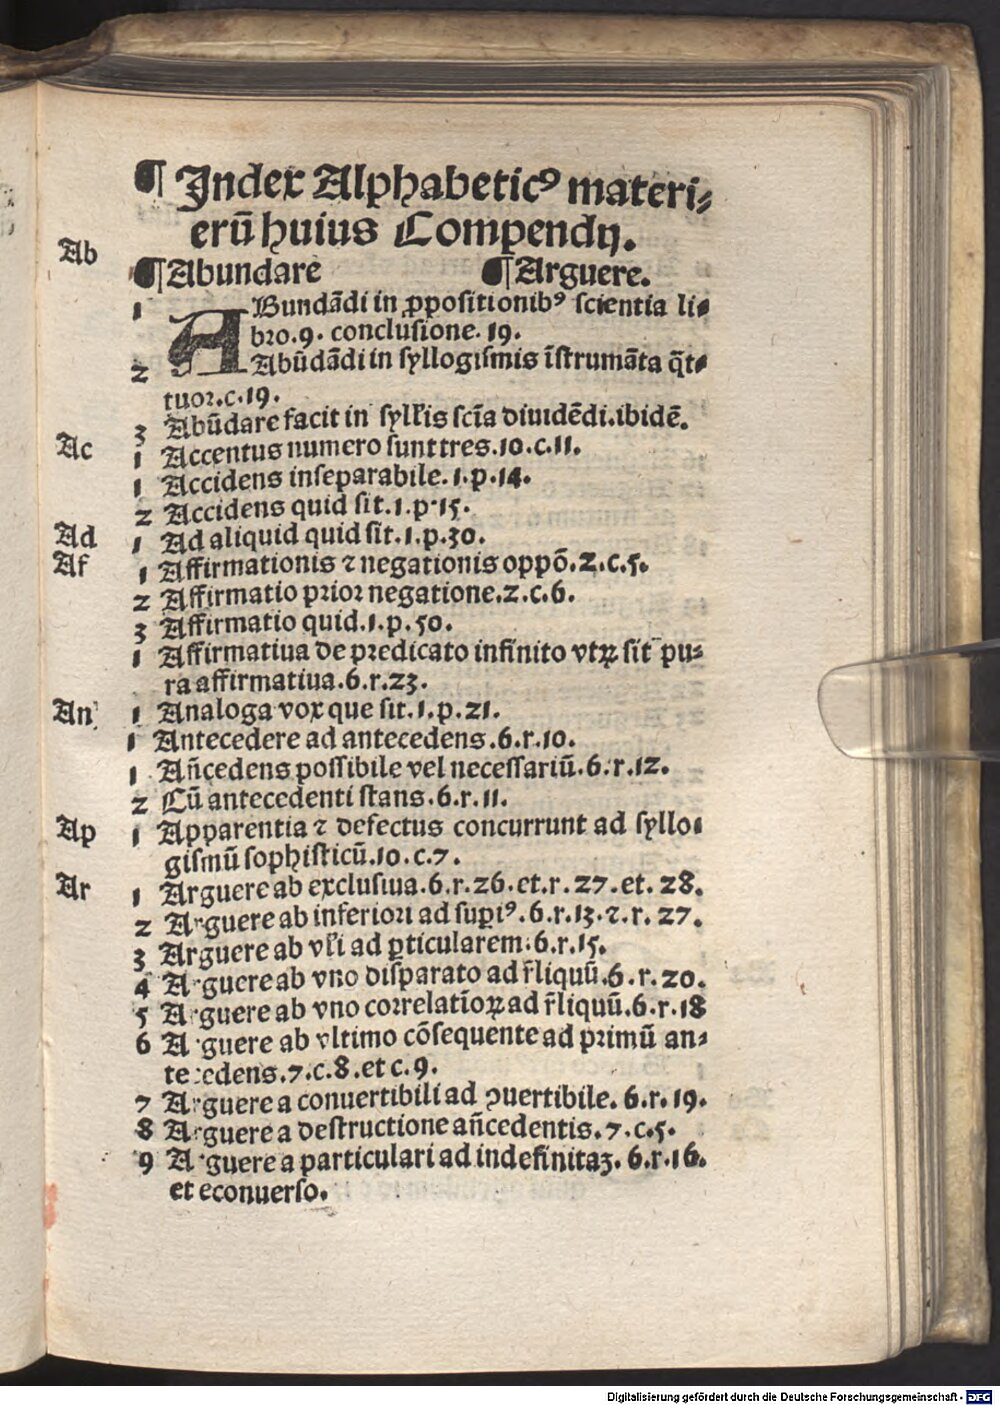 ¶ Index Alphabeticꝰ materi⸗
erū huius Compendij.
¶ Abundare ¶ Arguere.
Ab
1 ABundādi in ꝓpositionibꝰ scientia li⸗
bro.9. conclusione. 19.
2 Abūdādi in syllogismis īstrumāta q̄t⸗
tuor.c.19.
3 Abūdare facit in syll'is scīa diuidēdi.ibidē.
Ac 1 Accentus numero sunt tres.10.c.11.
1 Accidens inseparabile.1.p.14.
2 Accidens quid sit.1.p.15.
Ad 1 Ad aliquid quid sit.1.p.30.
Af 1 Affirmationis ⁊ negationis oppō.2.c.5.
2 Affirmatio prior negatione.2.c.6.
3 Affirmatio quid.1.p.50.
1 Affirmatiua de predicato infinito vtꝝ sit pu⸗
ra affirmatiua.6.r.23.
An 1 Analoga vox que sit.1.p.21.
1 Antecedere ad antecedens.6.r.10.
1 Añcedens possibile vel necessariū.6.r.12.
2 Cū antecedenti stans.6.r.11.
Ap 1 Apparentia ⁊ defectus concurrunt ad syllo⸗
gismū sophisticū.10.c.7.
Ar 1 Arguere ab exclusiua.6.r.26.et.r.27.et.28.
2 Arguere ab inferiori ad suꝑiꝰ.6.r.13.⁊.r.27.
3 Arguere ab vl'i ad ꝑticularem.6.r.15.
4 Arguere ab vno disparato ad r̄liquū.6.r.20.
5 Arguere ab vno correlatīoꝝ ad r̄liquū.6.r.18
6 Arguere ab vltimo cōsequente ad primū an⸗
tecedens.7.c.8.et c.9.
7 Arguere a conuertibili ad ꝯuertibile.6.r.19.
8 Arguere a destructione añcedentis.7.c.5.
9 Arguere a particulari ad indefinitaʒ.6.r.16.
et econuerso.
Digitalisierung gefördert durch die Deutsche Forschungsgemeinschaft - DFG